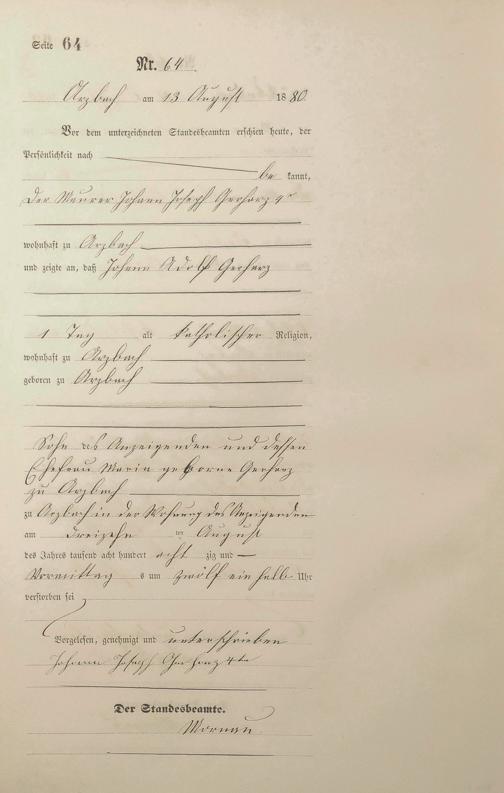 Seite 64
Nr. 64
Arzbach am 13 August 1880
Vor dem unterzeichneten Standesbeamten erschien heute, der
Persönlichkeit nach
be kannt,
der Maurer Johann Joseph Gerharz 4r
wohnhaft zu Arzbach
und zeigte an, daß Johann Adolf Gerharz
1 Tag alt katholischer Religion,
wohnhaft zu Arzbach
geboren zu Arzbach
Sohn des Anzeigenden und dessen
Ehefrau Maria geborne Gerharz
zu Arzbach
zu Arzbach in der Wohnung des Anzeigenden
am dreizehn ten August
des Jahres tausend acht hundert acht zig und
Vormittag s um zwölf ein halb Uhr
verstorben sei
Vorgelesen, genehmigt und unterschrieben
Johann Joseph Gerharz 4te
Der Standesbeamte.